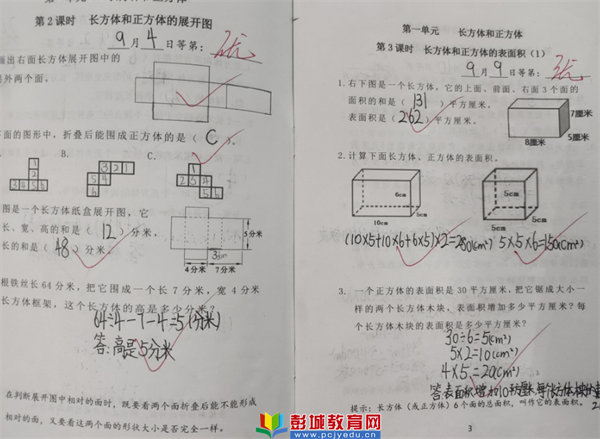 第2课时 长方体和正方体的展开图
9月4日等第：
画出右面长方体展开图中的
另外两个面。
下面的图形中，折叠后能围成正方体的是（ C ）。
B.
C.
图是一个长方体纸盒展开图，它
长、宽、高的和是（ 12 ）分米，
长的和是（ 48 ）分米。
5分米
3
4分米 7分米
根铁丝长64分米，把它围成一个长7分米，宽4分米
长方体框架，这个长方体的高是多少分米？
64÷4-7-4=5(分米)
答:高是5分米
在判断展开图中相对的面时，既要看两个面折叠后能不能形成
相对的面，又要看这两个面的形状大小是否完全一样。
第一单元 长方体和正方体
第3课时 长方体和正方体的表面积（1）
9月9日等第：
1. 右下图是一个长方体，它的上面、前面、右面3个面的
面积的和是（ 131 ）平方厘米，
表面积是（ 262 ）平方厘米。
7厘米
5厘米
8厘米
2. 计算下面长方体、正方体的表面积。
6cm
5cm
10cm
5cm
5cm
5cm
(10×5+10×6+6×5)×2=280(cm²) 5×5×6=150(cm²)
3. 一个正方体的表面积是30平方厘米，把它锯成大小一
样的两个长方体木块，表面积增加多少平方厘米？每
个长方体木块的表面积是多少平方厘米？
30÷6=5(cm²)
5×2=10(cm²)
4×5=20(cm²)
答:表面积增加10平方厘米,每个长方体木块的
提示：长方体（或正方体）6个面的总面积，叫作它的表面积。
3
彭城教育网
www.pcjyedu.cn